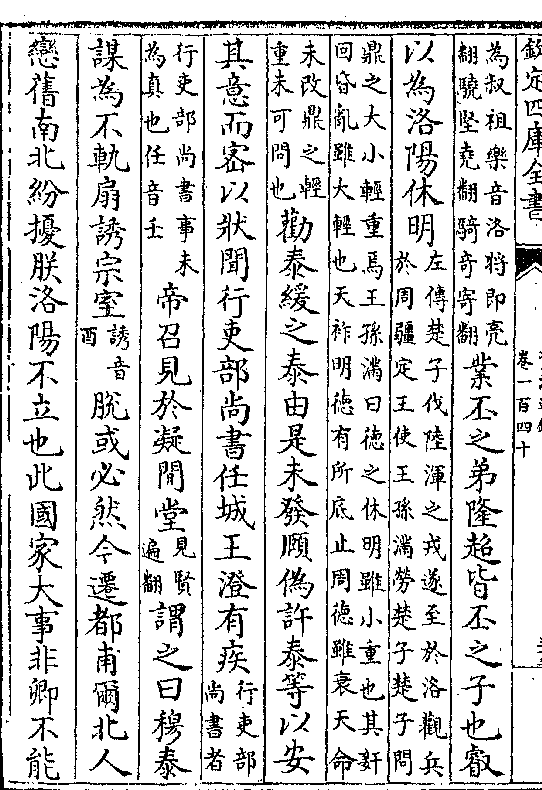 欽定四庫全書
卷一百四十
為叔祖樂音洛將即亮
翻驍堅堯翻騎奇寄翻
業丕之弟隆超皆丕之子也叡
以為洛陽休明
左傳楚子伐陸渾之戎遂至於洛觀兵
於周疆定王使王孫滿勞楚子楚子問
鼎之大小輕重焉王孫滿曰德之休明雖小重也其姧
回昏亂雖大輕也天祚明德有所底止周德雖衰天命
未改鼎之輕
重未可問也
勸泰緩之泰由是未發頤偽許泰等以安
其意而密以狀聞行吏部尚書任城王澄有疾
行吏部
尚書者
行吏部尚書事未
為真也任音壬
帝召見於凝閒堂
見賢
遍翻
謂之曰穆泰
謀為不軌扇誘宗室
誘音
酉
脫或必然今遷都甫爾北人
戀舊南北紛擾朕洛陽不立也此國家大事非卿不能